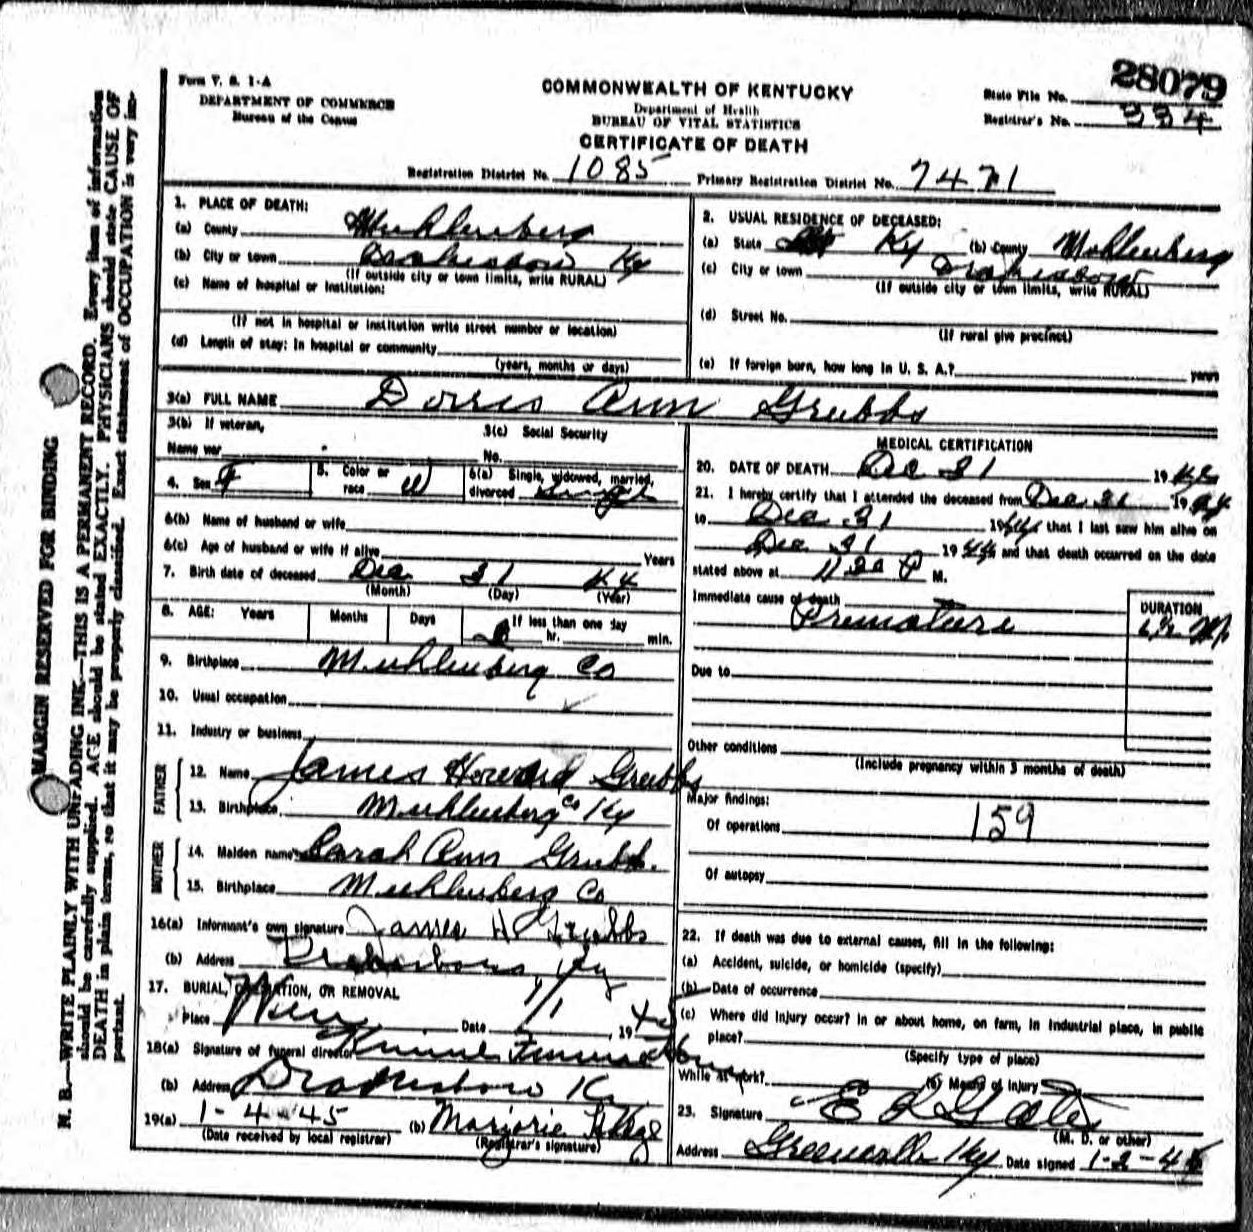 28079
Form V. S. 1-A
DEPARTMENT OF COMMERCE
Bureau of the Census
COMMONWEALTH OF KENTUCKY
Department of Health
BUREAU OF VITAL STATISTICS
CERTIFICATE OF DEATH
State File No.
Registrar's No. 334
Registration District No. 1085 Primary Registration District No. 7471
1. PLACE OF DEATH:
(a) County Muhlenberg
(b) City or town Drakesboro Ky
(If outside city or town limits, write RURAL)
(c) Name of hospital or institution:
(If not in hospital or institution write street number or location)
(d) Length of stay: In hospital or community
(years, months or days)
2. USUAL RESIDENCE OF DECEASED:
(a) State Ky (b) County Muhlenberg
(c) City or town Drakesboro
(If outside city or town limits, write RURAL)
(d) Street No.
(If rural give precinct)
(e) If foreign born, how long in U. S. A.? years
3(a) FULL NAME Dorris Ann Grubbs
3(b) If veteran,
Name war
3(c) Social Security
No.
4. Sex F 5. Color or race W 6(a) Single, widowed, married, divorced Single
6(b) Name of husband or wife
6(c) Age of husband or wife if alive Years
7. Birth date of deceased Dec 31 44
(Month) (Day) (Year)
8. AGE: Years Months Days If less than one day
hr. min.
9. Birthplace Muhlenberg Co
10. Usual occupation
11. Industry or business
FATHER
12. Name James Howard Grubbs
13. Birthplace Muhlenberg Co Ky
MOTHER
14. Maiden name Sarah Ann Grubbs.
15. Birthplace Muhlenberg Co
16(a) Informant's own signature James H Grubbs
(b) Address Drakesboro, Ky
17. BURIAL, CREMATION, OR REMOVAL
Place Date 1/1, 1945
18(a) Signature of funeral director
(b) Address Drakesboro Ky
19(a) 1-4-45 (b) Marjorie
(Date received by local registrar) (Registrar's signature)
MEDICAL CERTIFICATION
20. DATE OF DEATH Dec 31 1944
21. I hereby certify that I attended the deceased from Dec 31 1944
to Dec 31 1944 that I last saw him alive on
Dec 31 1944 and that death occurred on the date
stated above at 11 30 P M.
Immediate cause of death
Premature
DURATION
Due to
Other conditions
(Include pregnancy within 3 months of death)
Major findings:
Of operations 159
Of autopsy
22. If death was due to external causes, fill in the following:
(a) Accident, suicide, or homicide (specify)
(b) Date of occurrence
(c) Where did injury occur? In or about home, on farm, in industrial place, in public
place?
(Specify type of place)
While at work? (e) Means of injury
23. Signature
(M. D. or other)
Address Greenville Ky Date signed 1-2-45
MARGIN RESERVED FOR BINDING
N. B.—WRITE PLAINLY WITH UNFADING INK—THIS IS A PERMANENT RECORD. Every item of information
should be carefully supplied. AGE should be stated EXACTLY. PHYSICIANS should state CAUSE OF
DEATH in plain terms, so that it may be properly classified. Exact statement of OCCUPATION is very im-
portant.